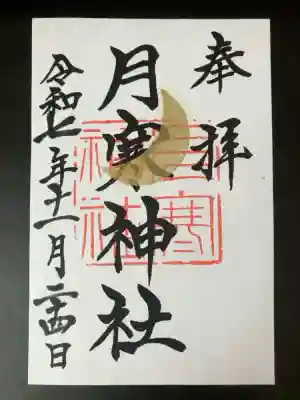 奉拝
月寒神社
令和七年十一月二十四日
月寒神社